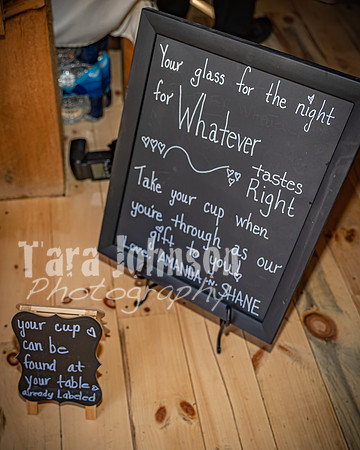 Your glass for the night
for Whatever
tastes
Right
Take your cup when
you're through as our
gift to you!
Love, AMANDA -n- SHANE
Tara Johnson
Photography
your cup
can be
found at
your table
already Labeled